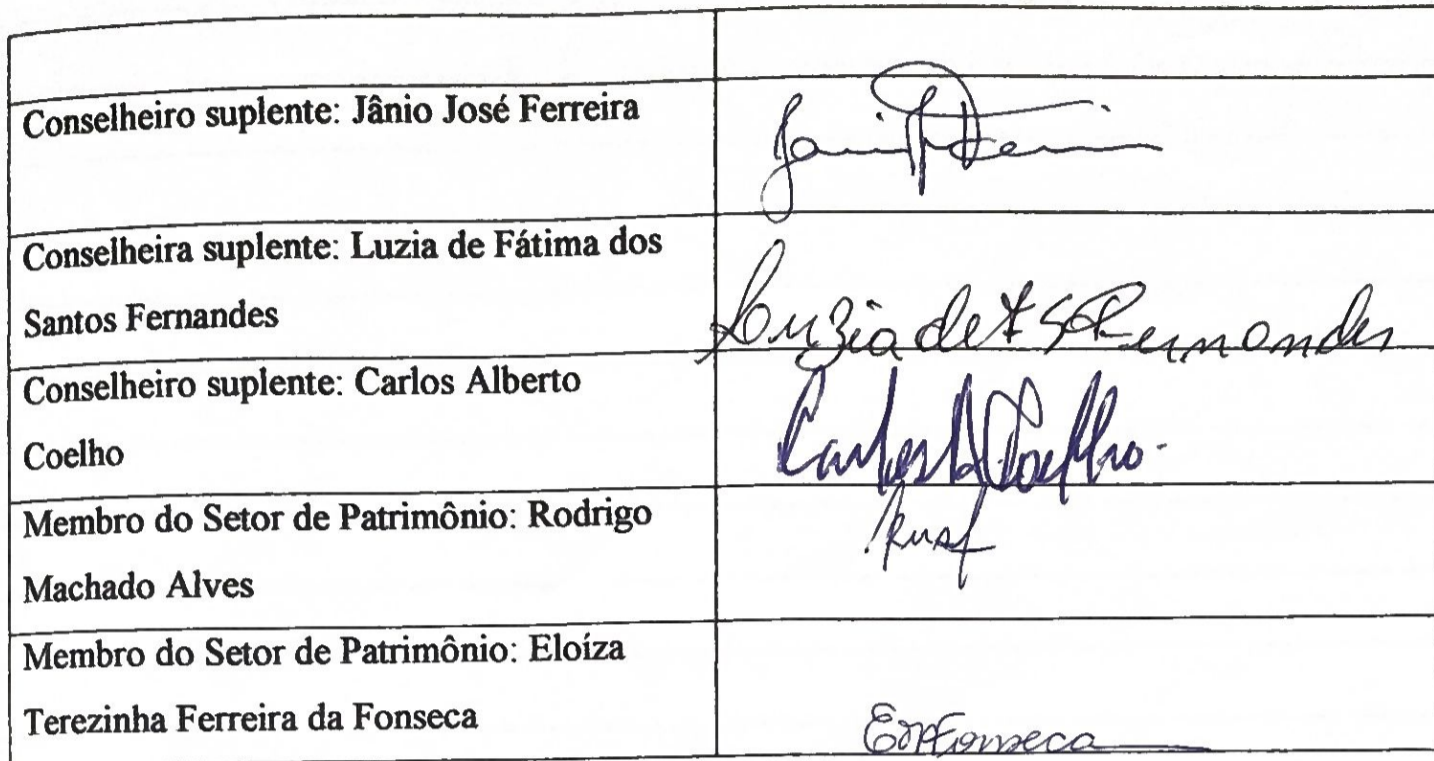 Conselheiro suplente: Jânio José Ferreira
Conselheira suplente: Luzia de Fátima dos
Santos Fernandes
Luzia de F S Fernandes
Conselheiro suplente: Carlos Alberto
Coelho
Carlos A Coelho
Membro do Setor de Patrimônio: Rodrigo
Machado Alves
Membro do Setor de Patrimônio: Eloíza
Terezinha Ferreira da Fonseca
ETFFonseca